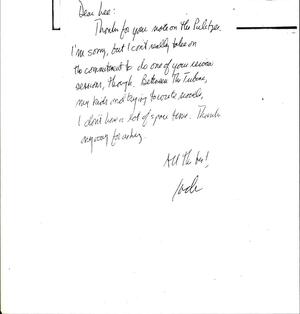 Dear Lee:
Thanks for your note on the Pulitzer.
I'm sorry, but I can't really take on
the commitment to do one of your
sessions, though. Between The Tribune,
my kids and trying to write novels,
I don't have a lot of spare time. Thanks
anyway for asking.
All the best!